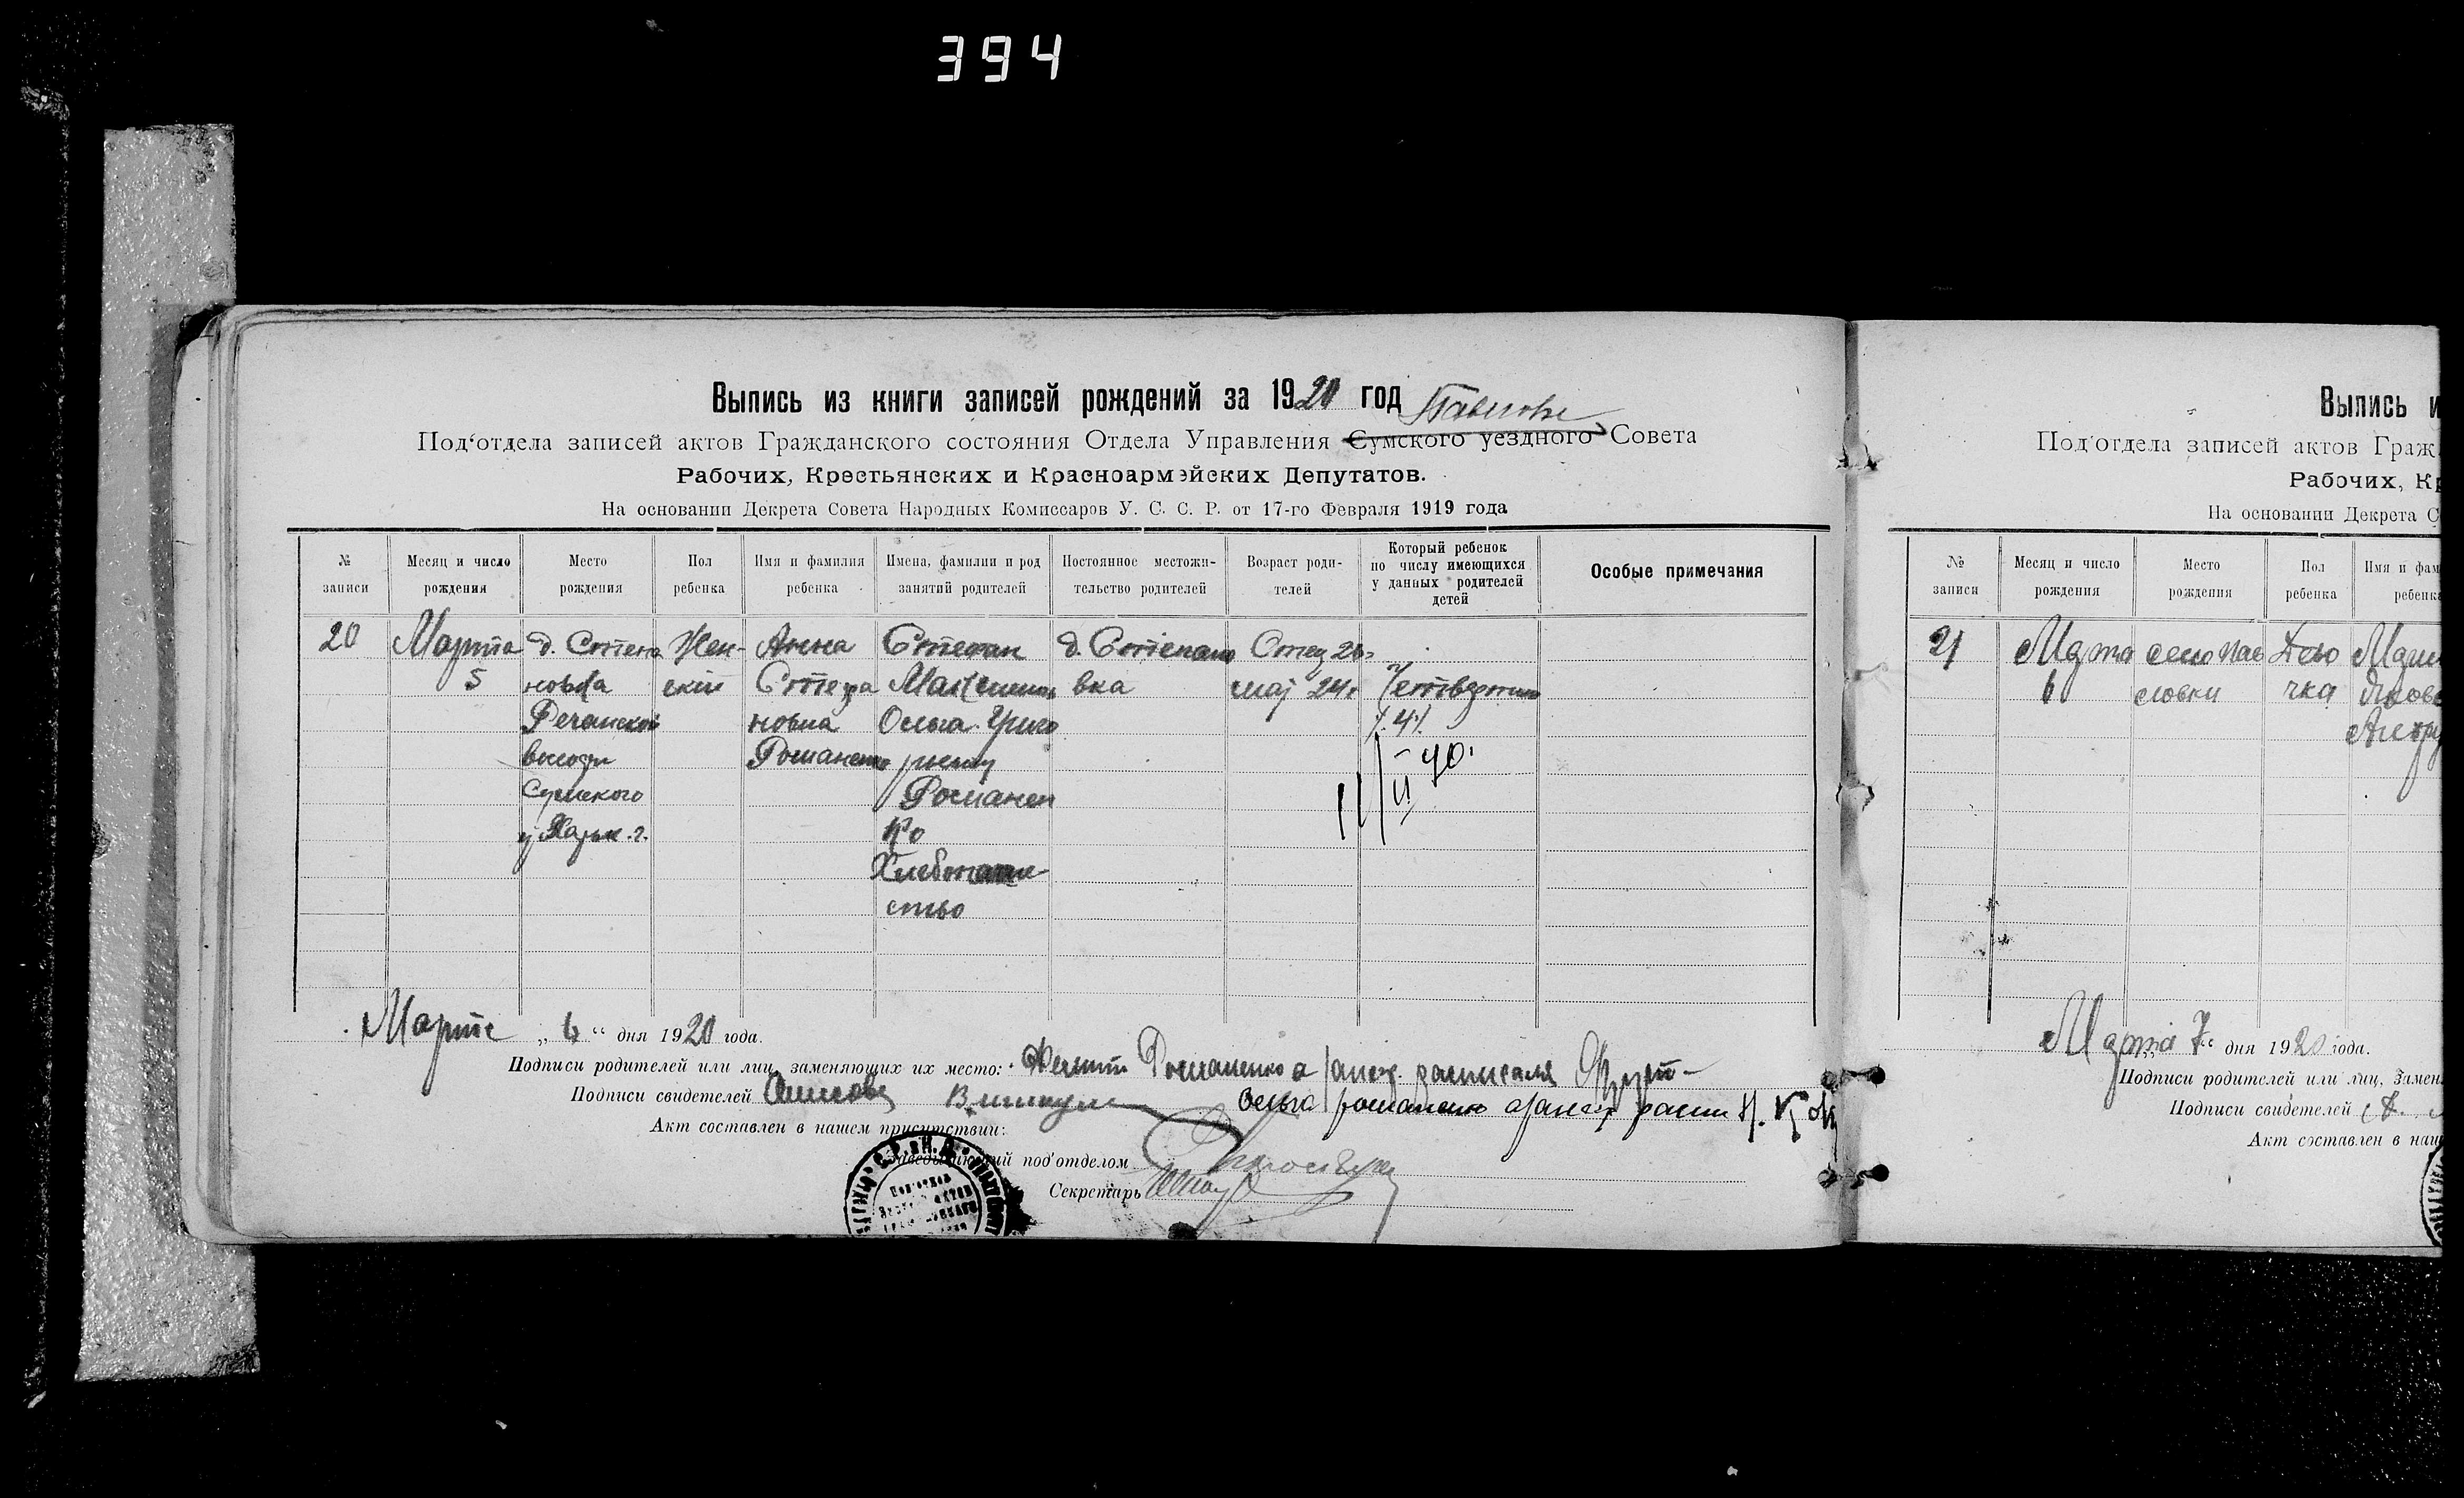 394
Выпись из книги записей рождений за 1920 год
Под'отдела записей актов Гражданского состояния Отдела Управления Сумского уездного Совета
Рабочих, Крестьянских и Красноармейских Депутатов.
На основании Декрета Совета Народных Комиссаров У. С. С. Р. от 17-го Февраля 1919 года
№ записи
Месяц и число рождения
Место рождения
Пол ребенка
Имя и фамилия ребенка
Имена, фамилии и род занятий родителей
Постоянное местожительство родителей
Возраст родителей
Который ребенок по числу имеющихся у данных родителей детей
Особые примечания
20
Марта
5
д. Степа
новка
Речанской
волости
Сумского
у Харьк. г.
Жен-
ский
Анна
Стефа
новна
Романенко
Стефан
Ольга Григо
Романен
ко
Хлебопаше-
ство
д. Степано
вка
Отец 26
мать 24
Четвертый
/.4/.
Марта „ 6 “ дня 1920 года.
Подписи родителей или лиц, заменяющих их место: Романенко а
Подписи свидетелей
Ольга Романенко
Акт составлен в нашем присутствии:
Заведывающий под'отделом
Секретарь
Выпись и
Под'отдела записей актов Граж
Рабочих, Кр
На основании Декрета С
№ записи
Месяц и число рождения
Место рождения
Пол ребенка
Имя и фам
ребенка
21
Марта
6
село Пав
ловки
Дево
чка
Марта 7 “ дня 1920 года.
Подписи родителей или лиц, замен
Подписи свидетелей
Акт составлен в наш